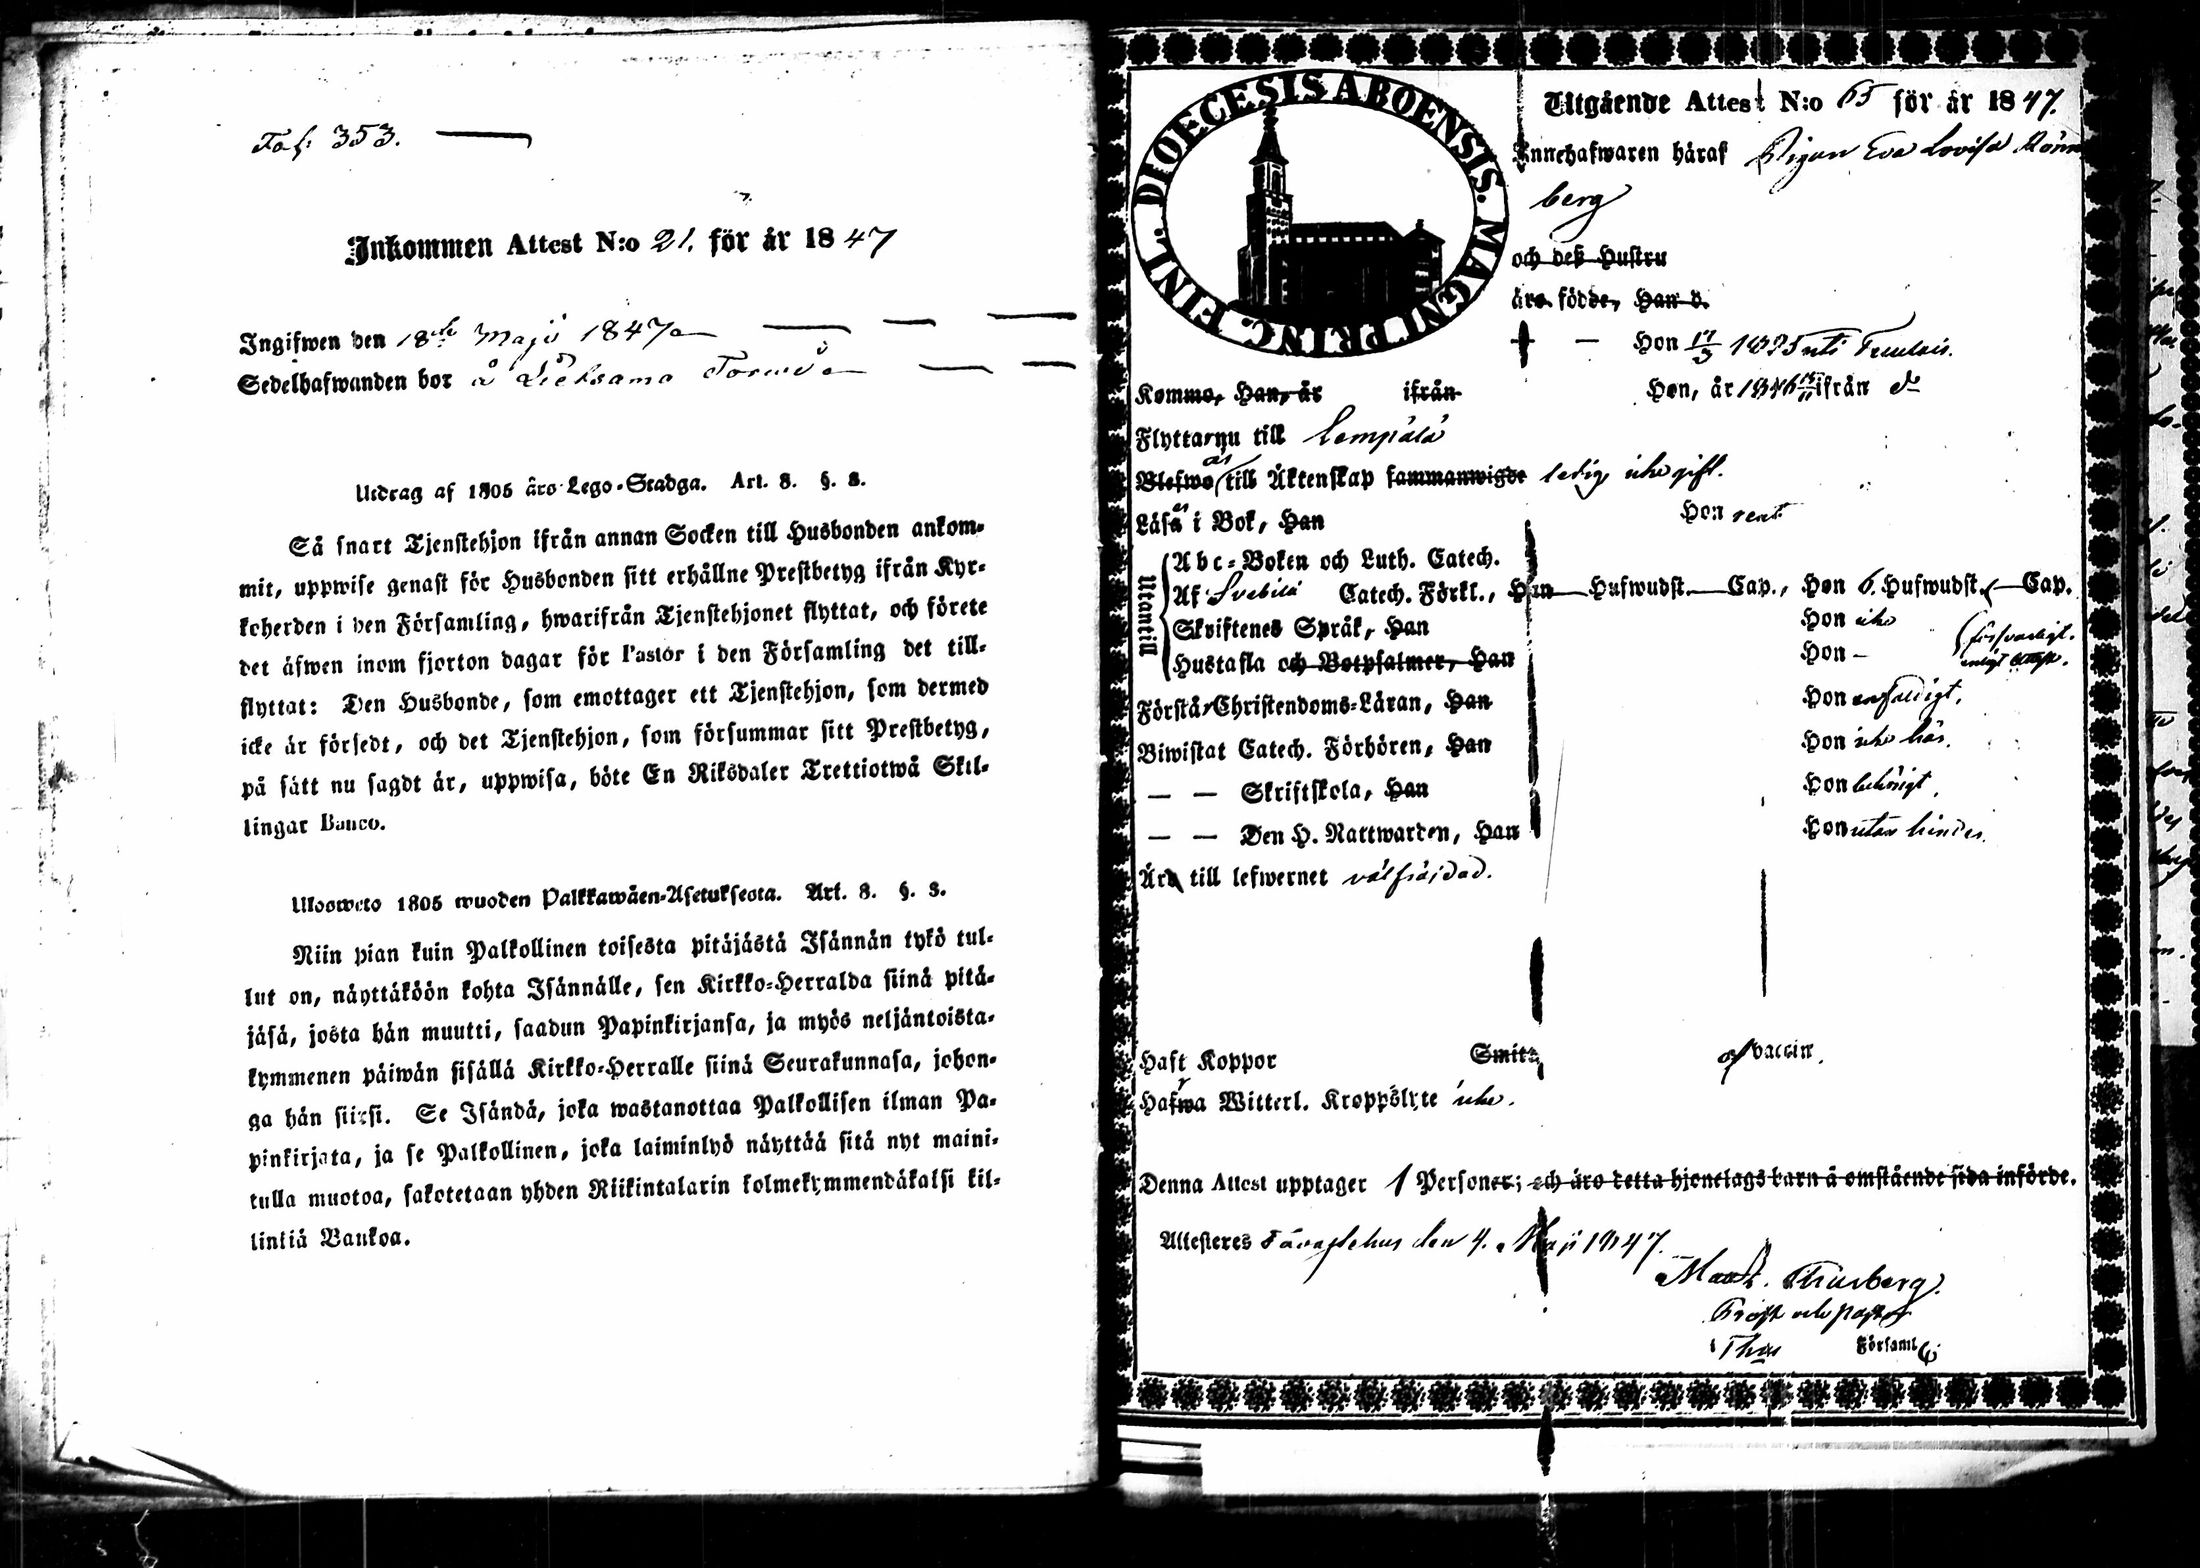 Fol: 353.
Inkommen Attest N:o 21. för år 1847
Ingifwen den 18de Maji 1847
Sedelhafwanden bor å
Utdrag af 1805 års Lego-Stadga. Art. 8. §. 3.
Så snart Tjenstehjon ifrån annan Socken till Husbonden ankom-
mit, uppwise genast för Husbonden sitt erhållne Prestbetyg ifrån Kyr-
koherden i den Församling, hwarifrån Tjenstehjonet flyttat, och förete
det äfwen inom fjorton dagar för Pastor i den Församling det till-
flyttat: Den Husbonde, som emottager ett Tjenstehjon, som dermed
icke är försedt, och det Tjenstehjon, som försummar sitt Prestbetyg,
på sätt nu sagdt är, uppwisa, böte En Riksdaler Trettiotwå Skil-
lingar Banco.
Ulosweto 1805 wuoden Palkkawäen-Asetuksesta. Art. 8. §. 3.
Niin pian kuin Palkollinen toisesta pitäjästä Isännän tykö tul-
lut on, näyttäköön kohta Isännälle, sen Kirkko-Herralda siinä pitä-
jäsä, josta hän muutti, saadun Papinkirjansa, ja myös neljäntoista-
kymmenen päiwän sisällä Kirkko-Herralle siinä Seurakunnasa, johon-
ga hän siirsi. Se Isändä, joka wastanottaa Palkollisen ilman Pa-
pinkirjata, ja se Palkollinen, joka laiminlyö näyttää sitä nyt maini-
tulla muotoa, sakotetaan yhden Riikintalarin kolmekymmendäkaksi kil-
linkiä Bankoa.
DIOECESIS ABOENSIS. MAGNI PRINC. FINL.
Utgående Attest N:o 65 för år 1847.
Innehafwaren häraf Pigan Eva Lovisa Rönn
berg
och deß Hustru
äro födde, Han d.
— Hon 17/3 1825 uti Trulais.
Komme, Han, år ifrån Hon, år 1846 ifrån
Flyttar nu till Lempälä
Blefwo är till Äktenskap sammanwigde ledig icke gift.
Läsa i Bok, Han Hon rent
Utantill
Abc-Boken och Luth. Catech.
Af Svebilii Catech. Förkl., Han Hufwudst. Cap., Hon 6. Hufwudst. Cap.
Skriftenes Språk, Han Hon icke
Hustafla och Botpsalmer, Han Hon — försvarligt.
Förstå Christendoms-Läran, Han Hon enfaldigt.
Biwistat Catech. Förhören, Han Hon icke här.
— — Skriftskola, Han Hon behörigt,
— — Den H. Nattwarden, Han Hon utan hinder.
Äro till lefwernet välfräjdad.
Haft Koppor Smitt, af vaccin.
Hafwa Witterl. Kroppslyte icke.
Denna Attest upptager 1 Personer; och äro detta hjonelags barn å omstående sida införde.
Attesteres Tavastehus den 4. Maji 1847.
Thusberg.
Församl.